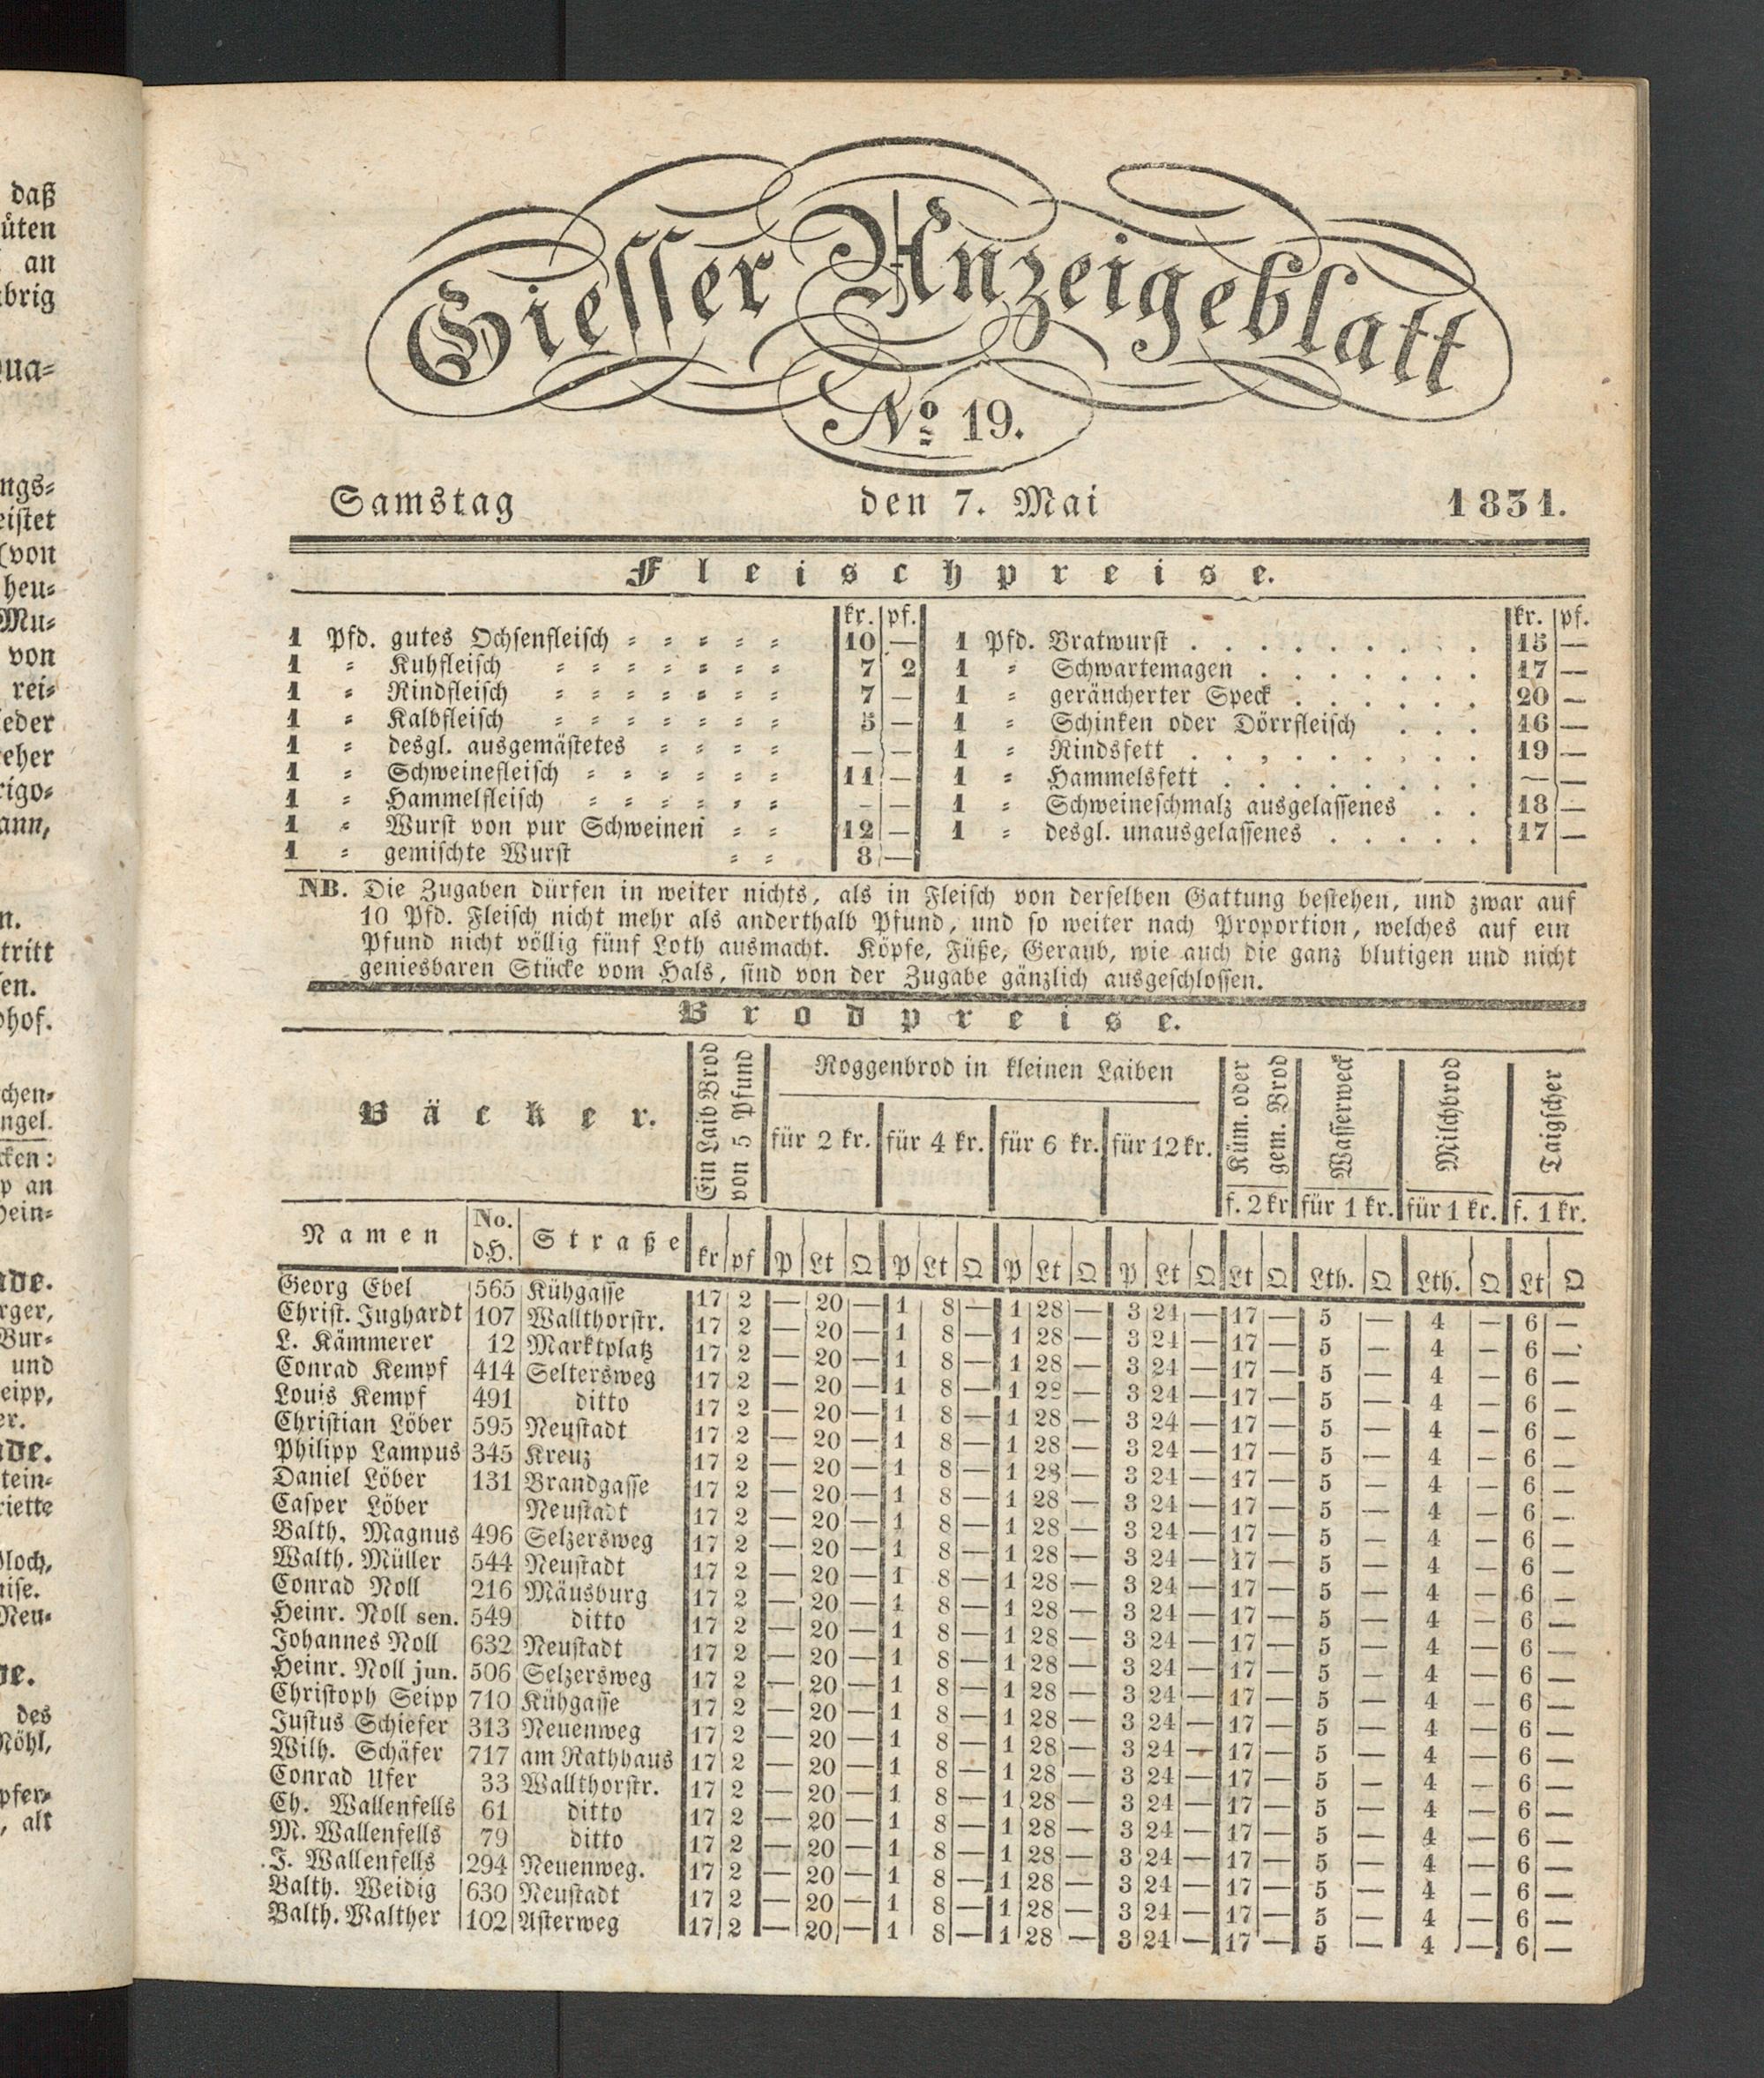 daß
üten
an
brig
ua=
ngs=
eistet
(von
heu=
Mu=
von
rei=
eder
eher
rigo=
ann,
n.
tritt
en.
hof.
chen=
ngel.
cken:
p an
ein=
de.
rger,
Bur=
und
eipp,
er.
de.
tein=
riette
loch,
ise.
Neu=
de.
des
Röhl,
pfer=
, alt
Giesser Anzeigeblatt
No 19.
Samstag den 7. Mai 1831.
Fleischpreise.
kr. pf. kr. pf.
1 Pfd. gutes Ochsenfleisch = = = = = 10 — 1 Pfd. Bratwurst . . . . . . . . . 15 —
1 = Kuhfleisch = = = = = = = 7 2 1 = Schwartemagen . . . . . . . 17 —
1 = Rindfleisch = = = = = = = 7 — 1 = geräucherter Speck . . . . . . 20 —
1 = Kalbfleisch = = = = = = = 5 — 1 = Schinken oder Dörrfleisch . . . 16 —
1 = desgl. ausgemästetes = = = = — — 1 = Rindsfett . . . . . . . . . 19 —
1 = Schweinefleisch = = = = = = 11 — 1 = Hammelsfett . . . . . . . . — —
1 = Hammelfleisch = = = = = = — — 1 = Schweineschmalz ausgelassenes . . 18 —
1 = Wurst von pur Schweinen = = 12 — 1 = desgl. unausgelassenes . . . . . 17 —
1 = gemischte Wurst = = 8 —
NB. Die Zugaben dürfen in weiter nichts, als in Fleisch von derselben Gattung bestehen, und zwar auf
10 Pfd. Fleisch nicht mehr als anderthalb Pfund, und so weiter nach Proportion, welches auf ein
Pfund nicht völlig fünf Loth ausmacht. Köpfe, Füße, Geraub, wie auch die ganz blutigen und nicht
geniesbaren Stücke vom Hals, sind von der Zugabe gänzlich ausgeschlossen.
Brodpreise.
Bäcker.
Ein Laib Brod
von 5 Pfund
Roggenbrod in kleinen Laiben
für 2 kr. für 4 kr. für 6 kr. für 12 kr.
Küm. oder
gem. Brod
f. 2 kr
Wasserweck
für 1 kr.
Milchbrod
für 1 kr.
Taigscher
f. 1 kr.
Namen No. d.H. Straße kr pf P Lt Q P Lt Q P Lt Q P Lt Q Lt Q Lth. Q Lth. Q Lt Q
Georg Ebel 565 Kühgasse 17 2 — 20 — 1 8 — 1 28 — 3 24 — 17 — 5 — 4 — 6 —
Christ. Jughardt 107 Wallthorstr. 17 2 — 20 — 1 8 — 1 28 — 3 24 — 17 — 5 — 4 — 6 —
L. Kämmerer 12 Marktplatz 17 2 — 20 — 1 8 — 1 28 — 3 24 — 17 — 5 — 4 — 6 —
Conrad Kempf 414 Seltersweg 17 2 — 20 — 1 8 — 1 28 — 3 24 — 17 — 5 — 4 — 6 —
Louis Kempf 491 ditto 17 2 — 20 — 1 8 — 1 28 — 3 24 — 17 — 5 — 4 — 6 —
Christian Löber 595 Neustadt 17 2 — 20 — 1 8 — 1 28 — 3 24 — 17 — 5 — 4 — 6 —
Philipp Lampus 345 Kreuz 17 2 — 20 — 1 8 — 1 28 — 3 24 — 17 — 5 — 4 — 6 —
Daniel Löber 131 Brandgasse 17 2 — 20 — 1 8 — 1 28 — 3 24 — 17 — 5 — 4 — 6 —
Casper Löber Neustadt 17 2 — 20 — 1 8 — 1 28 — 3 24 — 17 — 5 — 4 — 6 —
Balth. Magnus 496 Selzersweg 17 2 — 20 — 1 8 — 1 28 — 3 24 — 17 — 5 — 4 — 6 —
Walth. Müller 544 Neustadt 17 2 — 20 — 1 8 — 1 28 — 3 24 — 17 — 5 — 4 — 6 —
Conrad Noll 216 Mäusburg 17 2 — 20 — 1 8 — 1 28 — 3 24 — 17 — 5 — 4 — 6 —
Heinr. Noll sen. 549 ditto 17 2 — 20 — 1 8 — 1 28 — 3 24 — 17 — 5 — 4 — 6 —
Johannes Noll 632 Neustadt 17 2 — 20 — 1 8 — 1 28 — 3 24 — 17 — 5 — 4 — 6 —
Heinr. Noll jun. 506 Selzersweg 17 2 — 20 — 1 8 — 1 28 — 3 24 — 17 — 5 — 4 — 6 —
Christoph Seipp 710 Kühgasse 17 2 — 20 — 1 8 — 1 28 — 3 24 — 17 — 5 — 4 — 6 —
Justus Schiefer 313 Neuenweg 17 2 — 20 — 1 8 — 1 28 — 3 24 — 17 — 5 — 4 — 6 —
Wilh. Schäfer 717 am Rathhaus 17 2 — 20 — 1 8 — 1 28 — 3 24 — 17 — 5 — 4 — 6 —
Conrad Ufer 33 Wallthorstr. 17 2 — 20 — 1 8 — 1 28 — 3 24 — 17 — 5 — 4 — 6 —
Ch. Wallenfells 61 ditto 17 2 — 20 — 1 8 — 1 28 — 3 24 — 17 — 5 — 4 — 6 —
M. Wallenfells 79 ditto 17 2 — 20 — 1 8 — 1 28 — 3 24 — 17 — 5 — 4 — 6 —
J. Wallenfells 294 Neuenweg. 17 2 — 20 — 1 8 — 1 28 — 3 24 — 17 — 5 — 4 — 6 —
Balth. Weidig 630 Neustadt 17 2 — 20 — 1 8 — 1 28 — 3 24 — 17 — 5 — 4 — 6 —
Balth. Walther 102 Asterweg 17 2 — 20 — 1 8 — 1 28 — 3 24 — 17 — 5 — 4 — 6 —